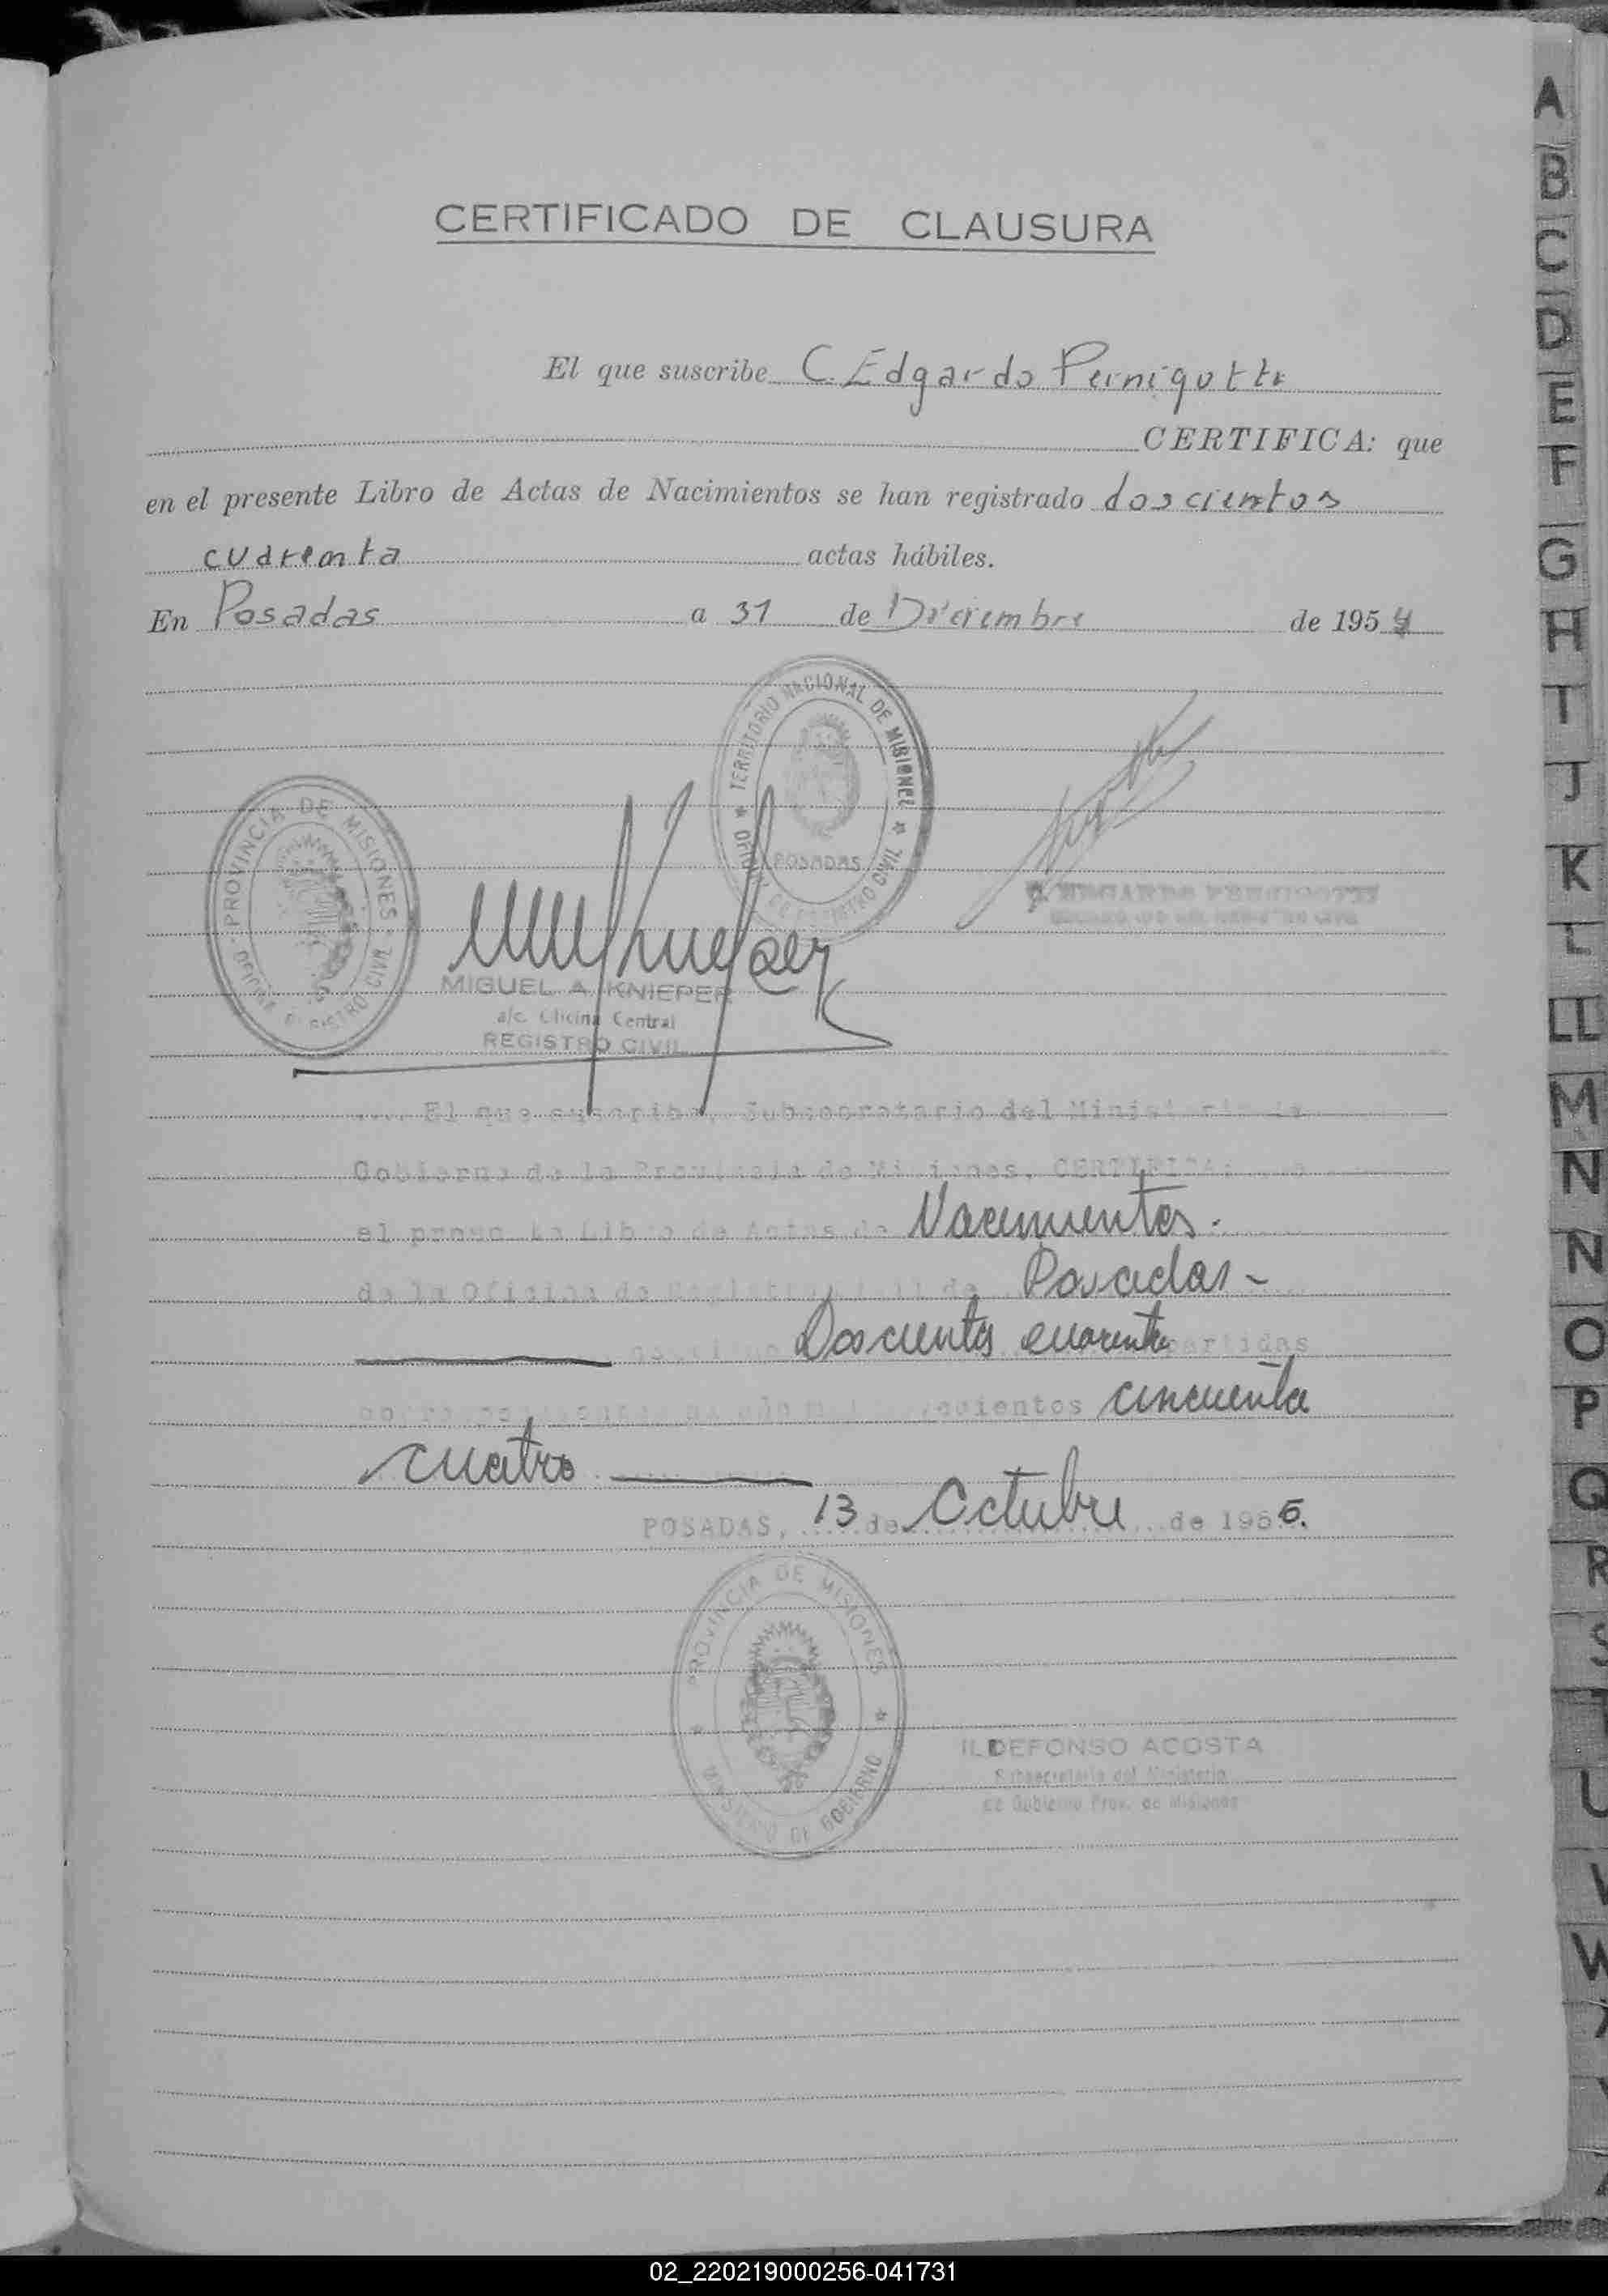 CERTIFICADO DE CLAUSURA
El que suscribe C. Edgardo Pernigotti
CERTIFICA: que
en el presente Libro de Actas de Nacimientos se han registrado doscientos
cuarenta actas hábiles.
En Posadas a 31 de Diciembre de 1954
TERRITORIO NACIONAL DE MISIONES
POSADAS
REGISTRO CIVIL
PROVINCIA DE MISIONES
OFICINA REGISTRO CIVIL
MIGUEL A. KNIEPER
a/c. Oficina Central
REGISTRO CIVIL
.... El que suscribe, Subsecretario del Ministerio de
Gobierno de la Provincia de Misiones, CERTIFICA: que
el presente Libro de Actas de Nacimientos.
de la Oficina de Registro Civil de Posadas -
Doscientos cuarenta partidas
correspondientes al año mil novecientos cincuenta
cuatro
POSADAS, 13 de Octubre de 1955.
PROVINCIA DE MISIONES
MINISTERIO DE GOBIERNO
ILDEFONSO ACOSTA
Subsecretario del Ministerio
de Gobierno Prov. de Misiones
A
B
C
D
E
F
G
H
I
J
K
L
LL
M
N
N
O
P
Q
R
S
T
U
V
W
02_220219000256-041731